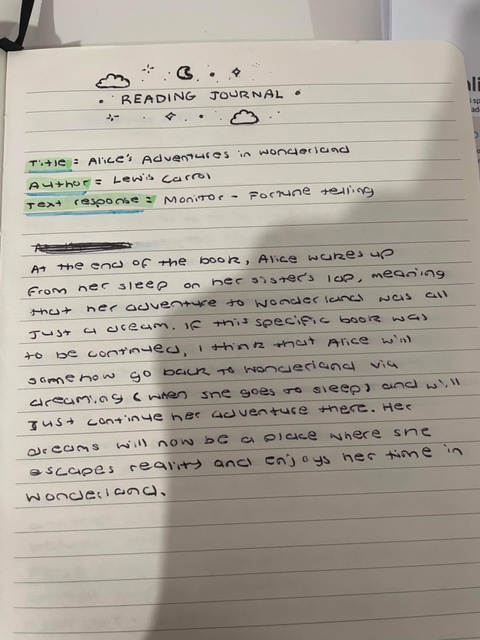 READING JOURNAL
Title = Alice's Adventures in Wonderland
Author = Lewis Carrol
Text response = Monitor - Fortune telling
At the end of the book, Alice wakes up
from her sleep on her sister's lap, meaning
that her adventure to wonderland was all
just a dream. If this specific book was
to be continued, I think that Alice will
somehow go back to wonderland via
dreaming (when she goes to sleep) and will
just continue her adventure there. Her
dreams will now be a place where she
escapes reality and enjoys her time in
wonderland.